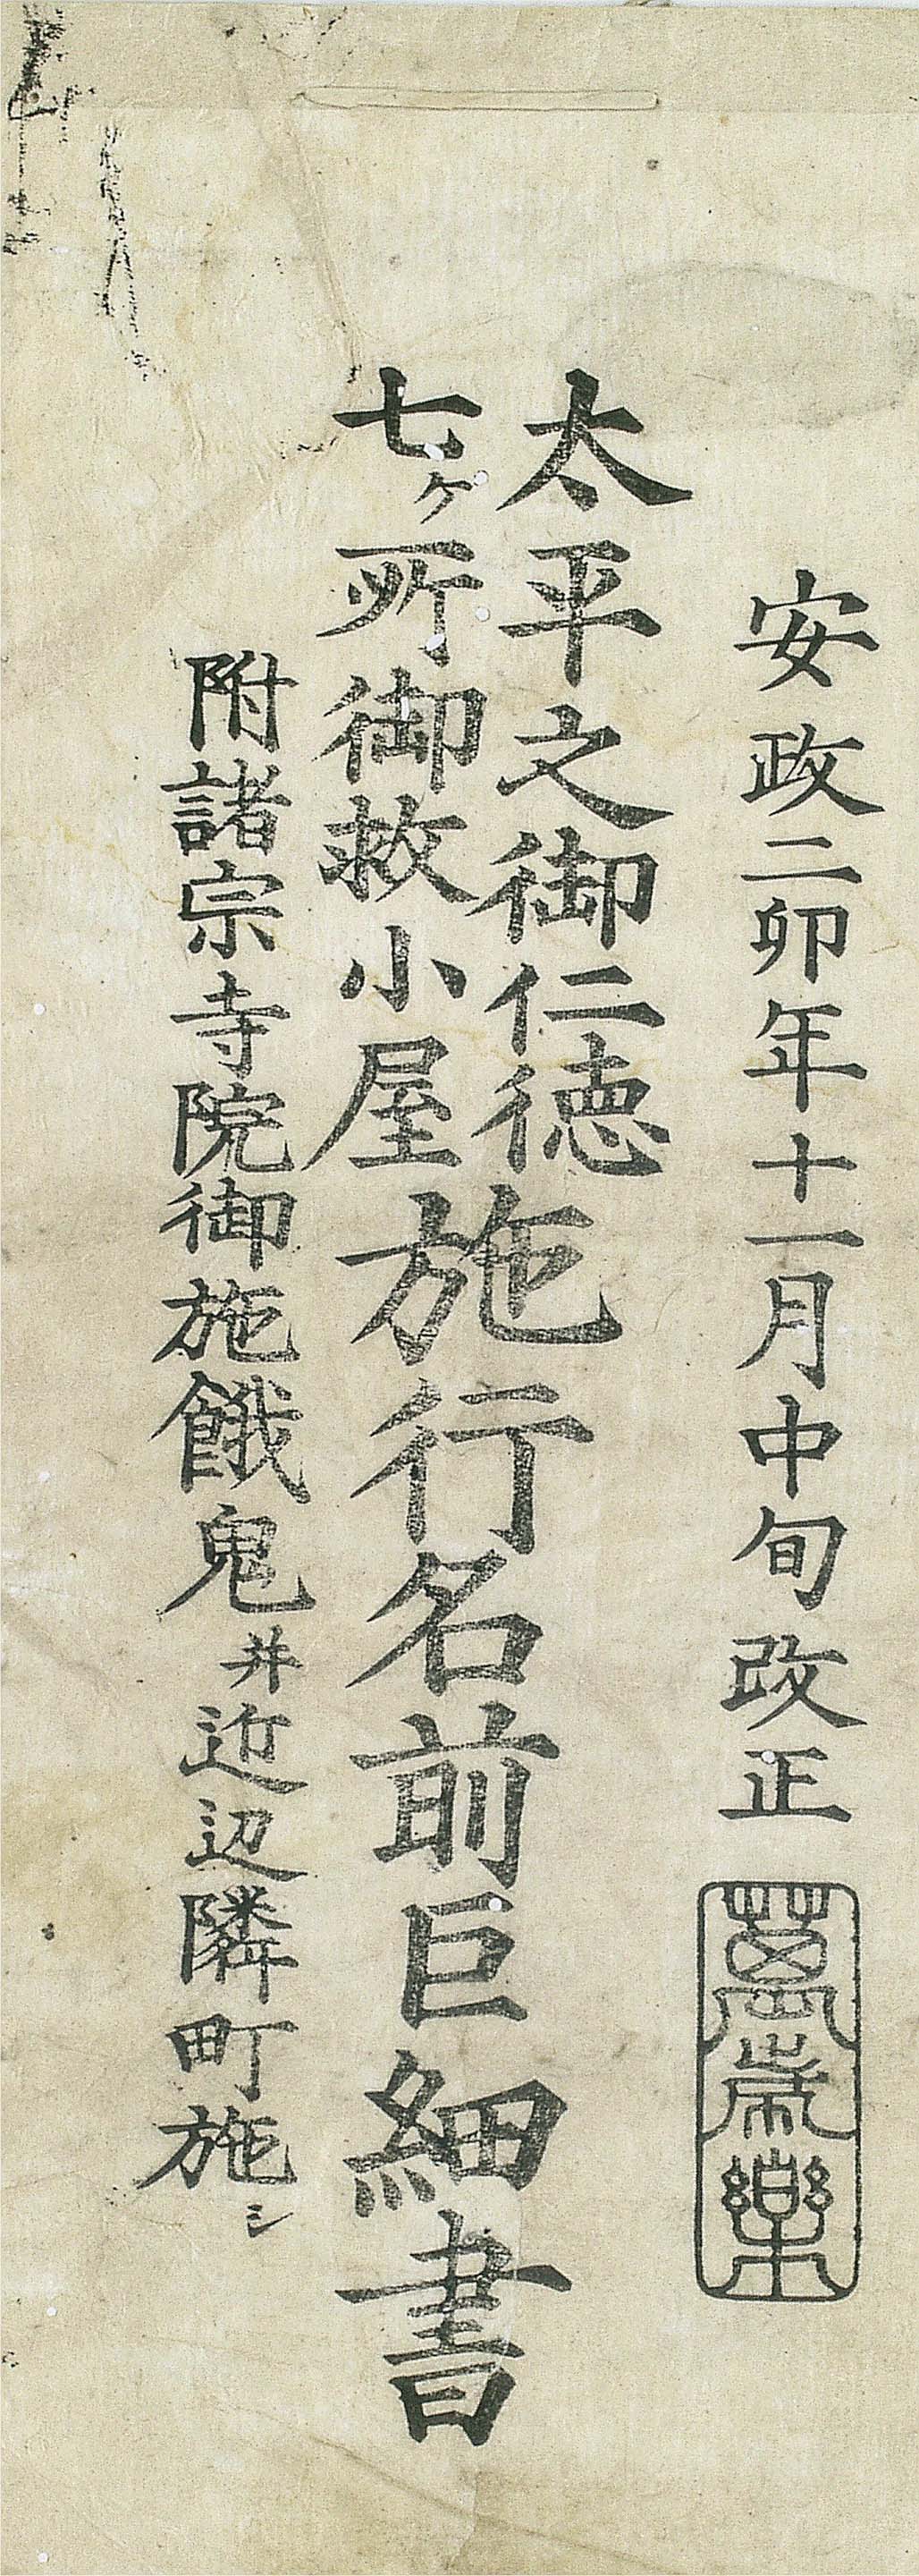 安政二卯年十一月中旬改正
萬歳樂
太平之御仁徳
七ヶ所御救小屋
施行名前巨細書
附諸宗寺院御施餓鬼并近辺隣町施シ